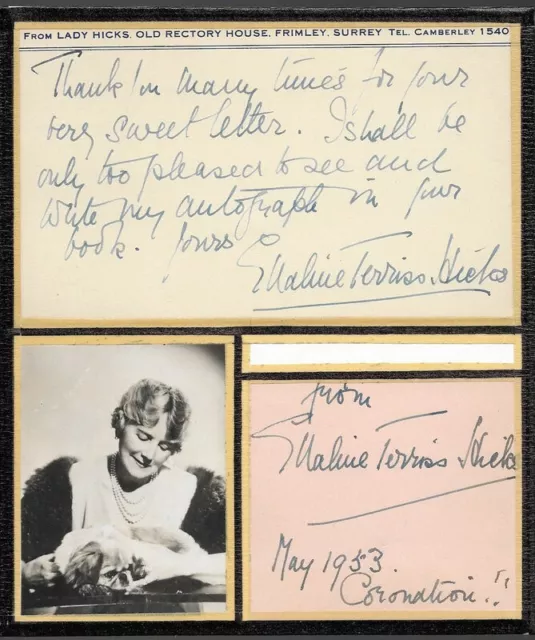 FROM LADY HICKS, OLD RECTORY HOUSE, FRIMLEY, SURREY TEL. CAMBERLEY 1540
Thank You many times for your
very sweet letter. I shall be
only too pleased to see and
write my autograph in your
book. Yours
Ellaline Terriss. Hicks
from
Ellaline Terriss Hicks
May 1953.
Coronation!!